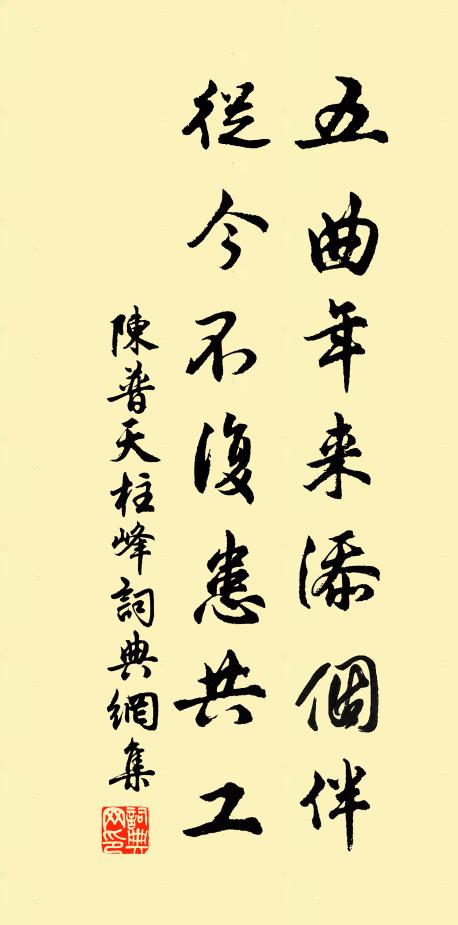 五曲年来添個伴
從今不復患共工
陳普天柱峰詞典網集
詞典網印